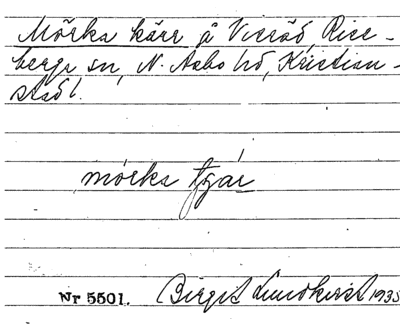 Mörka kärr å Vieröd, Rise-
berga sn, N. Åsbo hd, Kristian-
stad l.
mórka tjǫ́r
Nr 5501. Birgit Lundkvist 1935